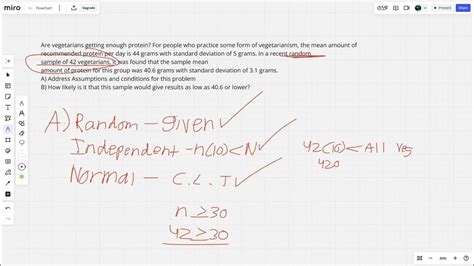 miro
Flowchart
Upgrade
Share
Are vegetarians getting enough protein? For people who practice some form of vegetarianism, the mean amount of
recommendert protein per day is 44 grams with standard deviation of 5 grams. In a recent random,
sample of 42 vegetarians, it was found that the sample mean
amount of protein for this group was 40.6 grams with standard deviation of 3.1 grams.
A) Address Assumptions and conditions for this problem
B) How likely is it that this sample would give results as low as 40.6 or lower?
A) Random - given ✓
Independent - n(10) < N ✓
42(10) < All Veg
420
Normal - C.L.T ✓
n ≥ 30
42 ≥ 30
30%